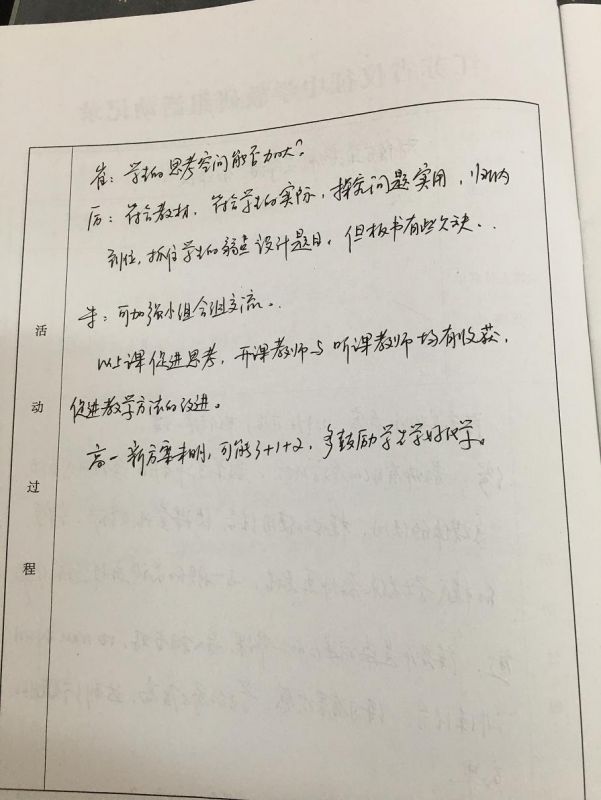 崔：学生的思考空间能否加大？
厉：符合教材，符合学生的实际，探究问题实用，归纳
到位，抓住学生的弱点设计题目，但板书有些欠缺．．
李：可加强小组合组交流。．
以上课促进思考，开课教师与听课教师均有收获，
促进教学方法的改进。
高一新方案未明，可能3+1+2，多鼓励学生学好化学。
活
动
过
程